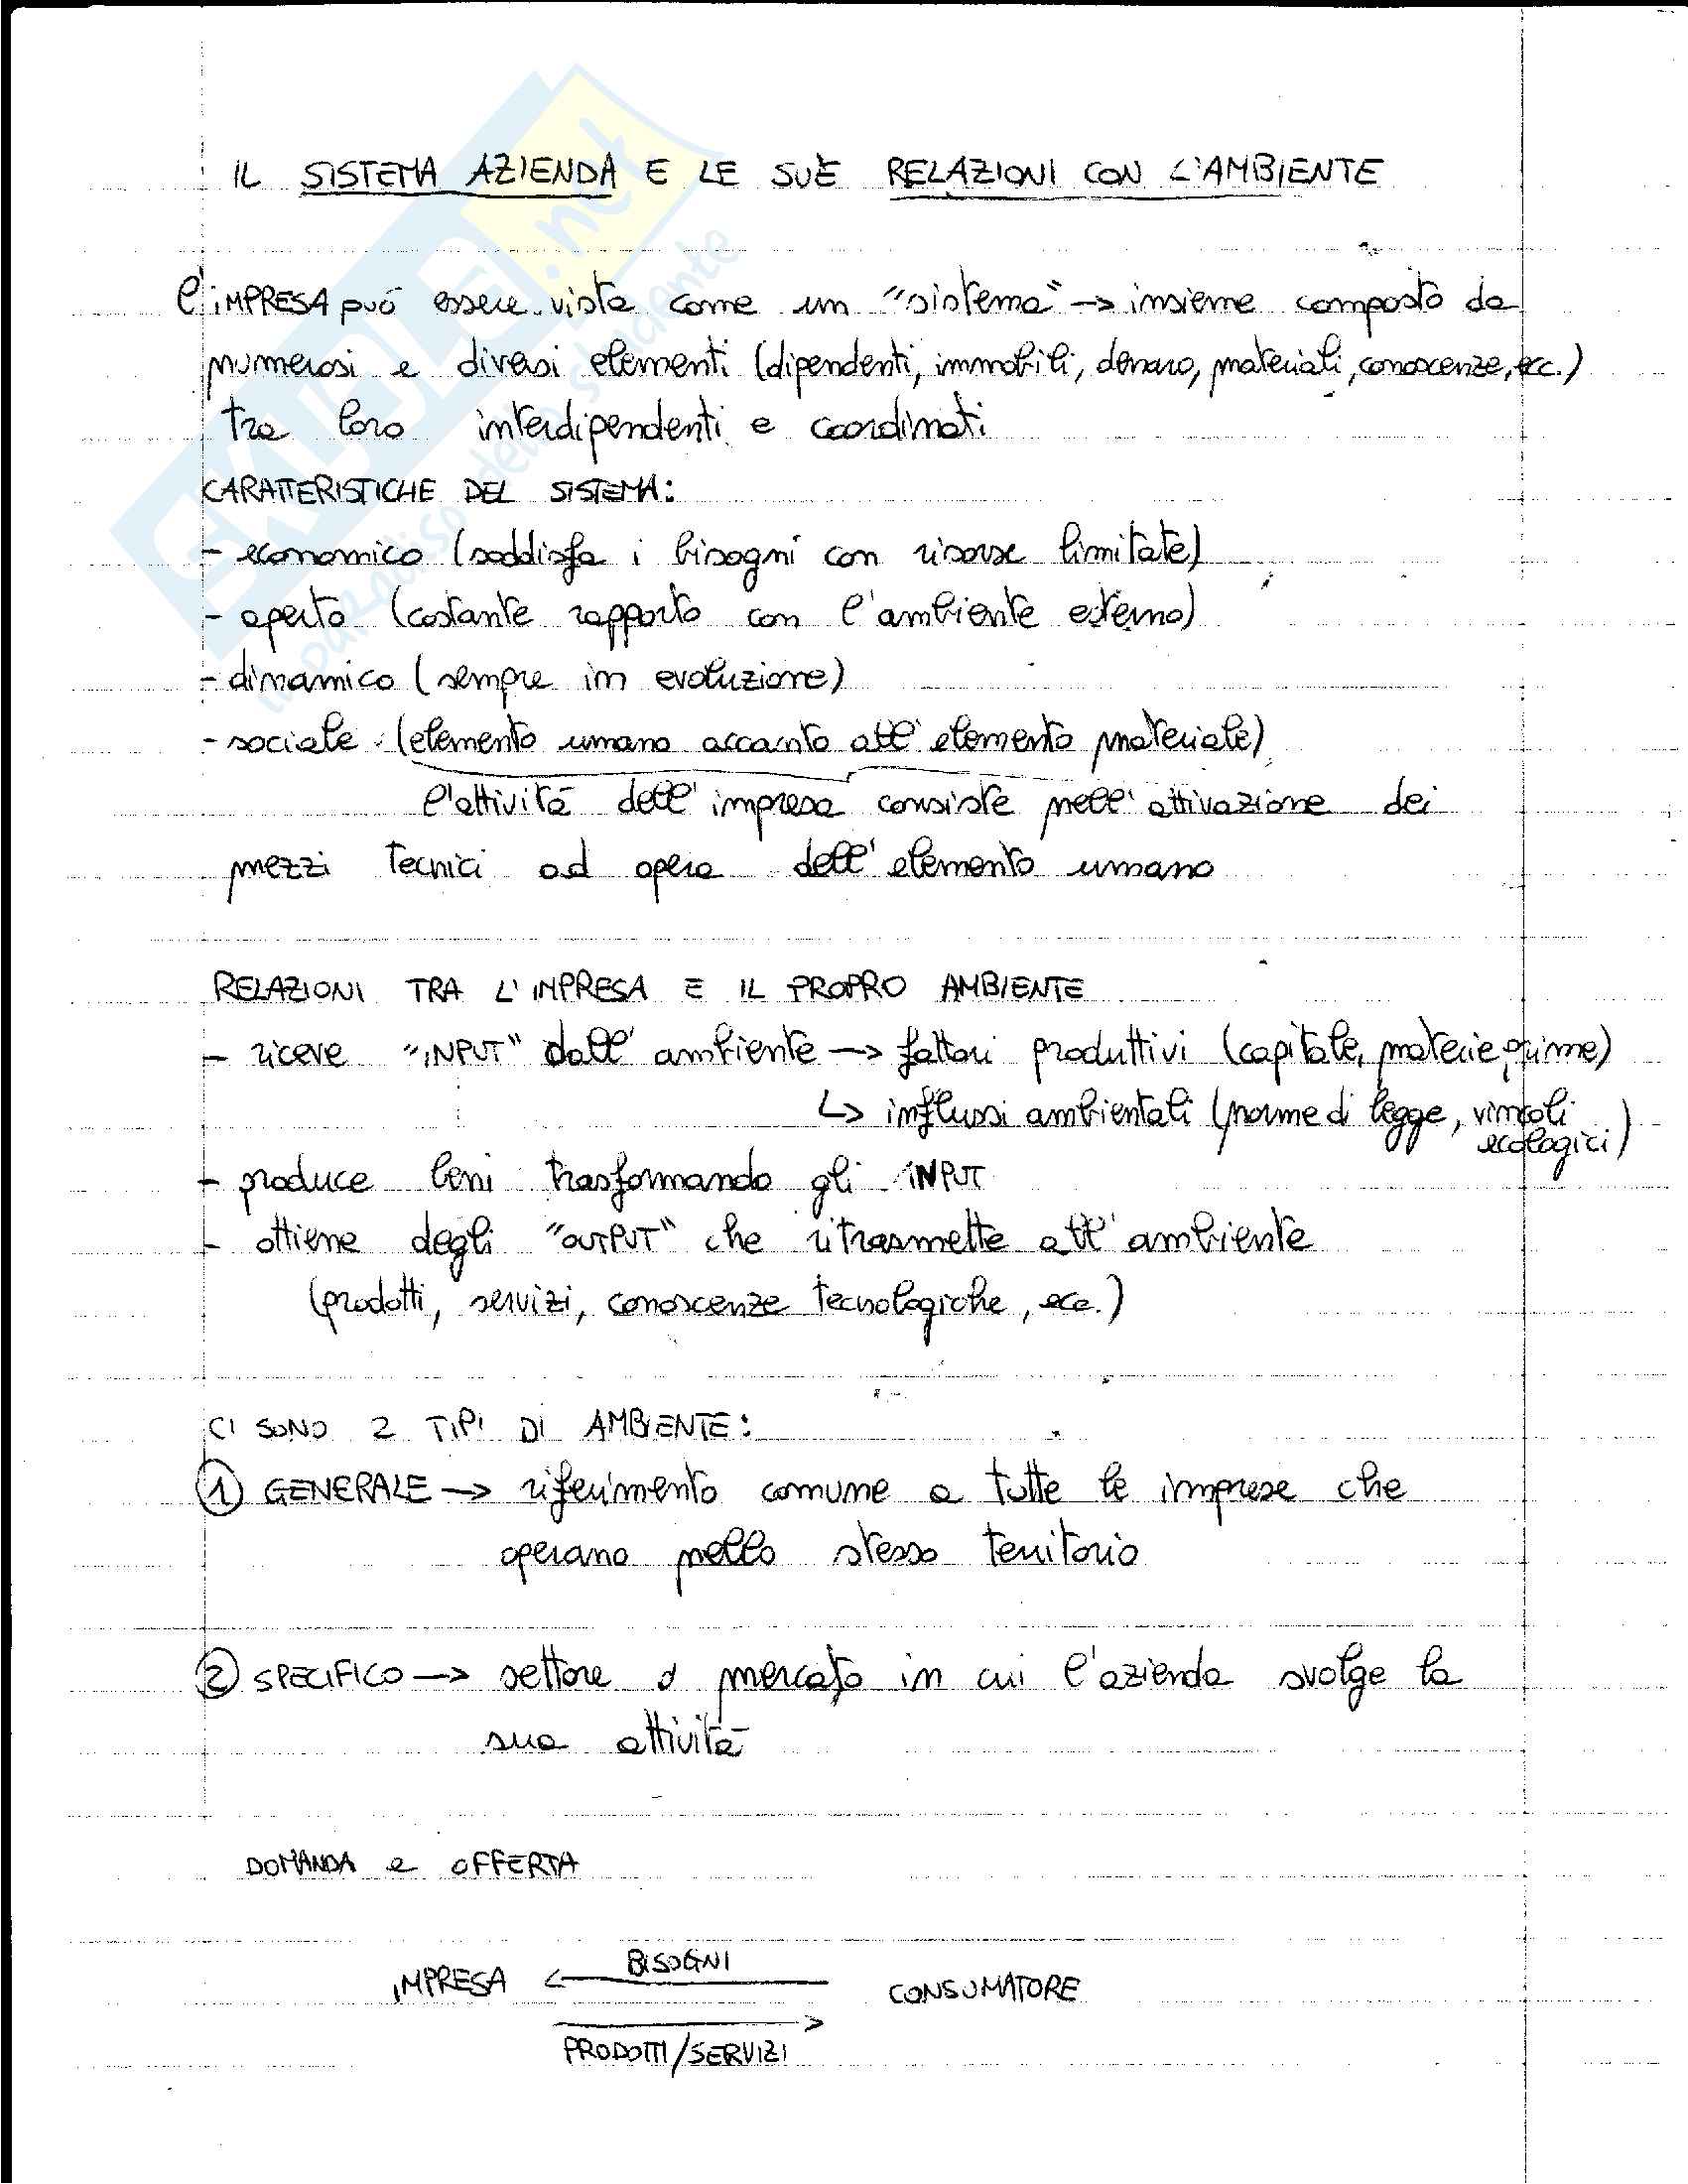 IL SISTEMA AZIENDA E LE SUE RELAZIONI CON L'AMBIENTE
l'IMPRESA può essere vista come un "sistema" → insieme composto da
numerosi e diversi elementi (dipendenti, immobili, denaro, materiali, conoscenze, ecc.)
tra loro interdipendenti e coordinati
CARATTERISTICHE DEL SISTEMA:
- economico (soddisfa i bisogni con risorse limitate)
- aperto (costante rapporto con l'ambiente esterno)
- dinamico (sempre in evoluzione)
- sociale (elemento umano accanto all'elemento materiale)
l'attività dell'impresa consiste nell'attivazione dei
mezzi tecnici ad opera dell'elemento umano
RELAZIONI TRA L'IMPRESA E IL PROPRO AMBIENTE
- riceve "INPUT" dall'ambiente → fattori produttivi (capitale, materie prime)
↳ influssi ambientali (norme di legge, vincoli
ecologici)
- produce beni trasformando gli INPUT
- ottiene degli "OUTPUT" che ritrasmette all'ambiente
(prodotti, servizi, conoscenze tecnologiche, ecc.)
CI SONO 2 TIPI DI AMBIENTE:
① GENERALE → riferimento comune a tutte le imprese che
operano nello stesso territorio
② SPECIFICO → settore o mercato in cui l'azienda svolge la
sua attività
DOMANDA e OFFERTA
BISOGNI
IMPRESA ← CONSUMATORE
→
PRODOTTI/SERVIZI
SKUOLA.net
il paradiso dello studente